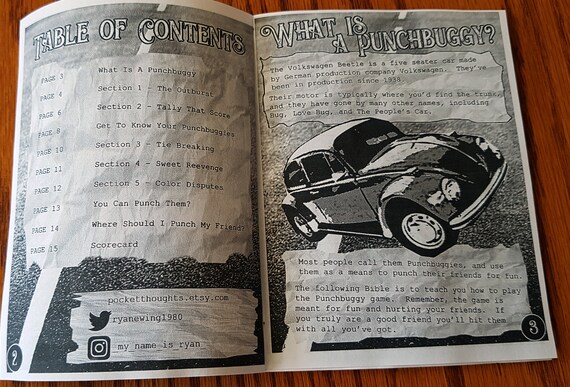 TABLE OF CONTENTS
PAGE 3 What Is A Punchbuggy
PAGE 4 Section 1 - The Outburst
PAGE 6 Section 2 - Tally That Score
PAGE 8 Get To Know Your Punchbuggies
PAGE 10 Section 3 - Tie Breaking
PAGE 11 Section 4 - Sweet Revenge
PAGE 12 Section 5 - Color Disputes
PAGE 13 You Can Punch Them?
PAGE 14 Where Should I Punch My Friend?
PAGE 15 Scorecard
pocketthoughts.etsy.com
ryanewing1980
my_name_is_ryan
2
WHAT IS
A PUNCHBUGGY?
The Volkswagen Beetle is a five seater car made
by German production company Volkswagen. They've
been in production since 1938.
Their motor is typically where you'd find the trunk,
and they have gone by many other names, including
Bug, Love Bug, and The People's Car.
Most people call them Punchbuggies, and use
them as a means to punch their friends for fun.
The following Bible is to teach you how to play
the Punchbuggy game. Remember, the game is
meant for fun and hurting your friends. If
you truly are a good friend you'll hit them
with all you've got.
3